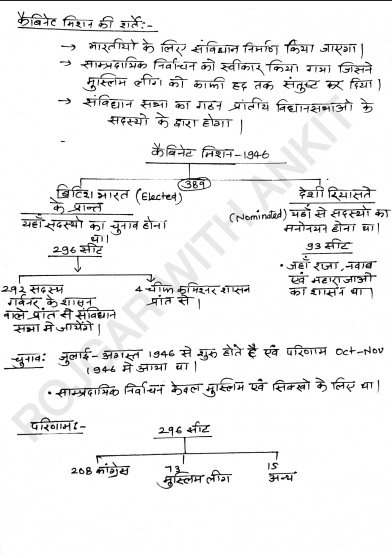 कैबिनेट मिशन की शर्ते:-
→ भारतीयो के लिए संविधान निर्माण किया जाएगा।
→ साम्प्रदायिक निर्वाचन को स्वीकार किया गया जिसने
मुस्लिम लीग को काफी हद तक संतुष्ट कर दिया।
→ संविधान सभा का गठन प्रांतीय विधानसभाओं के
सदस्यो के द्वारा होगा।
कैबिनेट मिशन-1946
389
ब्रिटिश भारत (Elected)
के प्रान्त
यहाँ सदस्यो का चुनाव होना
था।
296 सीट
292 सदस्य
गर्वनर के शासन
वाले प्रांत से संविधान
सभा में जायेंगे।
4 चीफ कमिश्नर शासन
प्रांत से।
देशी रियासते
(Nominated) यहाँ से सदस्यो का
मनोनयन होना था।
93 सीट
• जहाँ राजा, नवाब
एवं महाराजाओ
का शासन था।
चुनाव: जुलाई-अगस्त 1946 से शुरु होते है एवं परिणाम Oct-Nov
1946 में आया था।
• साम्प्रदायिक निर्वाचन केवल मुस्लिम एवं सिक्खो के लिए था।
परिणाम:-
296 सीट
208 कांग्रेस
73
मुस्लिम लीग
15
अन्य
ROJGAR WITH ANKIT